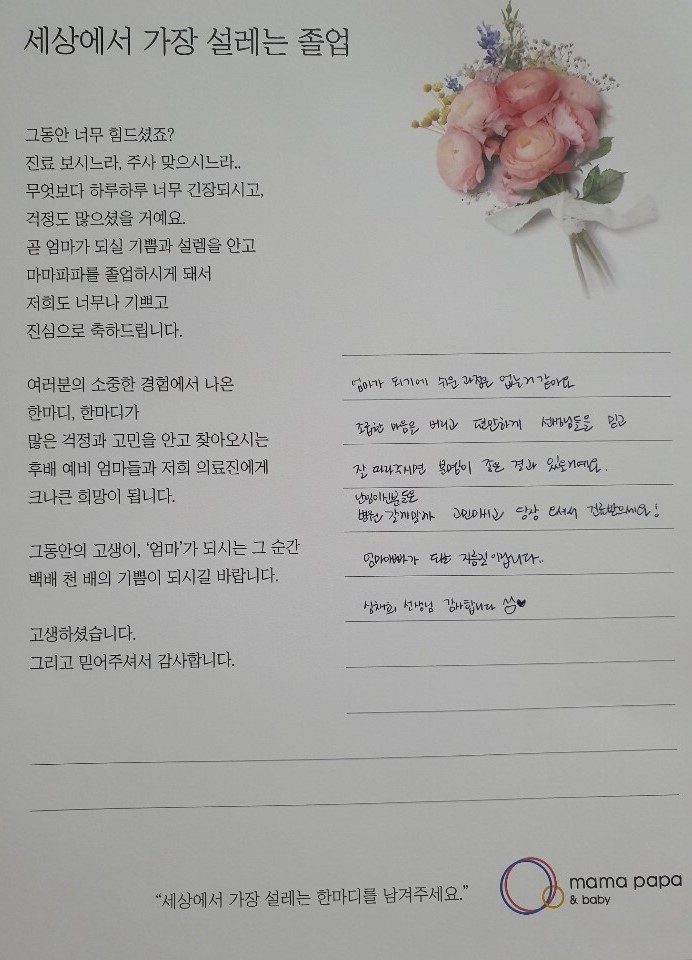 세상에서 가장 설레는 졸업
그동안 너무 힘드셨죠?
진료 보시느라, 주사 맞으시느라..
무엇보다 하루하루 너무 긴장되시고,
걱정도 많으셨을 거예요.
곧 엄마가 되실 기쁨과 설렘을 안고
마마파파를 졸업하시게 돼서
저희도 너무나 기쁘고
진심으로 축하드립니다.
여러분의 소중한 경험에서 나온
한마디, 한마디가
많은 걱정과 고민을 안고 찾아오시는
후배 예비 엄마들과 저희 의료진에게
크나큰 희망이 됩니다.
그동안의 고생이, ‘엄마’가 되시는 그 순간
백배 천 배의 기쁨이 되시길 바랍니다.
고생하셨습니다.
그리고 믿어주셔서 감사합니다.
엄마가 되기에 쉬운 과정은 없는거 같아요
조급한 마음을 버리고 편안하게 선생님들을 믿고
잘 따라주시면 분명이 좋은 결과 있을거예요.
난임이신분들은
병원 갈까말까 고민마시고 당장 오셔서 진료받으세요!
엄마아빠가 되는 지름길이랍니다..
선생님 감사합니다
“세상에서 가장 설레는 한마디를 남겨주세요.”
mama papa
& baby